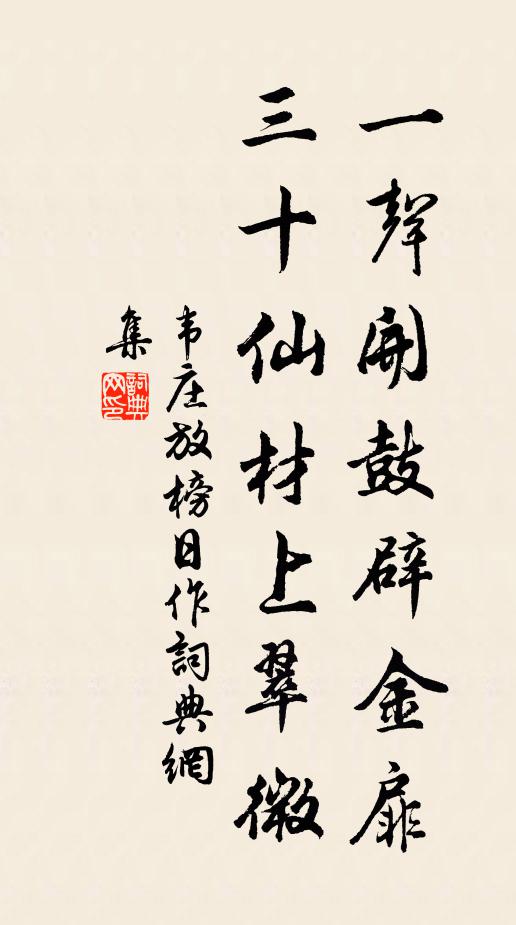 一聲開鼓辟金扉
三十仙材上翠微
韦庄放榜日作詞典網
集
詞典
网印